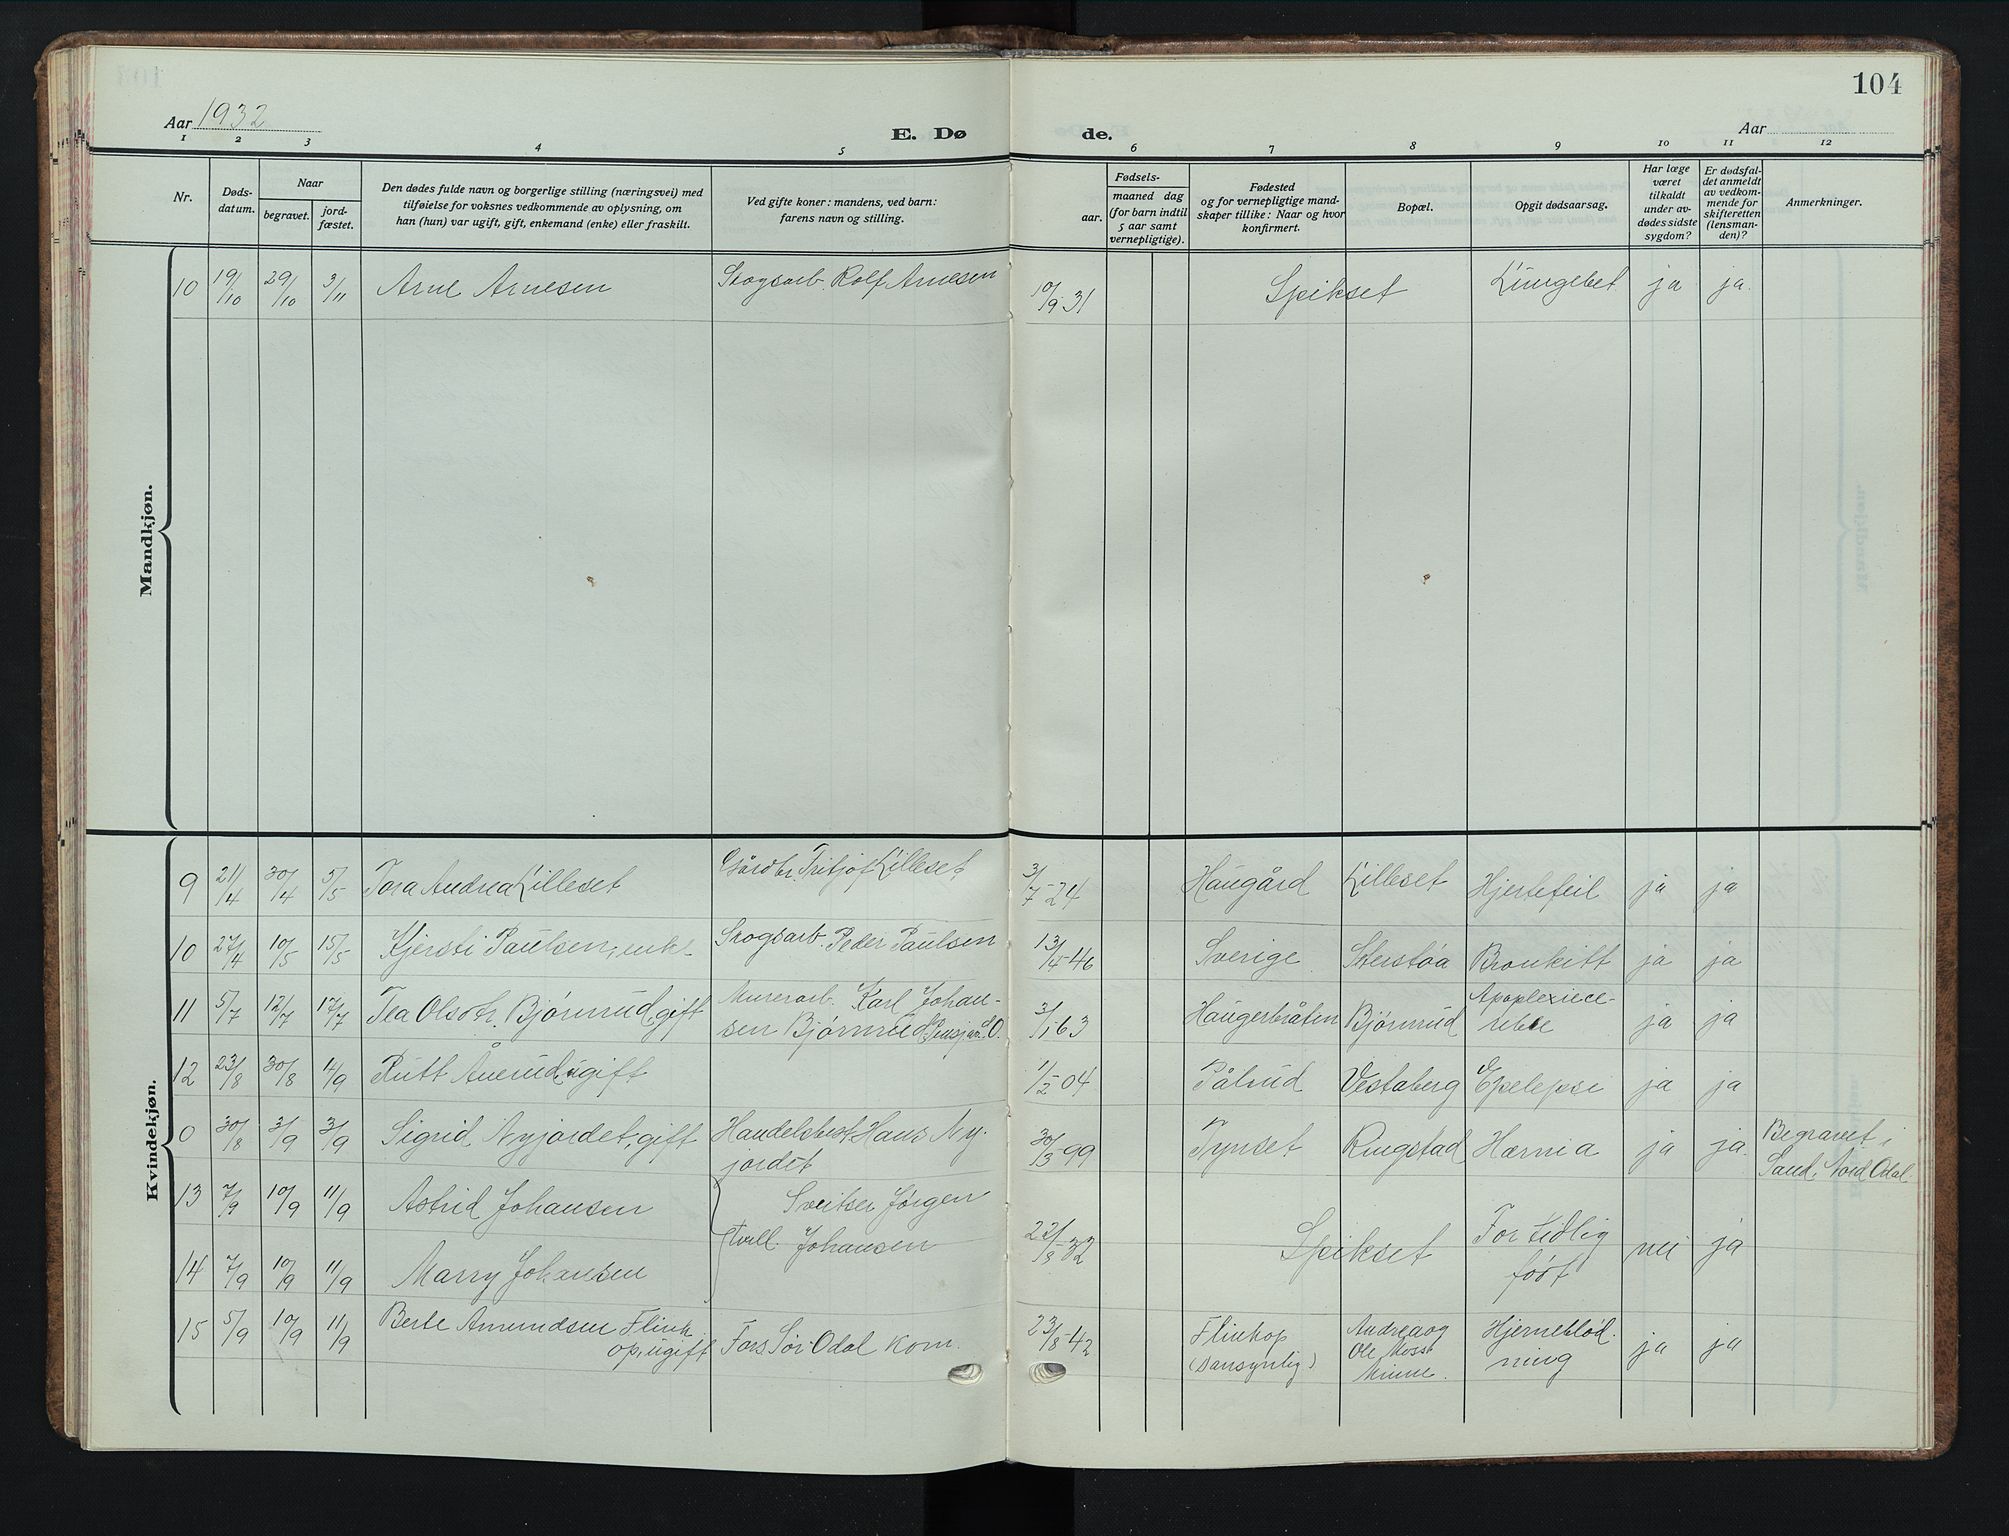 104
Aar 1932
E. Dø
de.
Aar
1 2 3 4 5 6 7 8 9 10 11 12
Nr.
Døds-
datum.
Naar
begravet.
jord-
fæstet.
Den dødes fulde navn og borgerlige stilling (næringsvei) med
tilføielse for voksnes vedkommende av oplysning, om
han (hun) var ugift, gift, enkemand (enke) eller fraskilt.
Ved gifte koner: mandens, ved barn:
farens navn og stilling.
Fødsels-
aar.
maaned dag
(for barn indtil
5 aar samt
vernepligtige).
Fødested
og for vernepligtige mand-
skaper tillike: Naar og hvor
konfirmert.
Bopæl.
Opgit dødsaarsag.
Har læge
været
tilkaldt
under av-
dødes sidste
sygdom?
Er dødsfal-
det anmeldt
av vedkom-
mende for
skifteretten
(lensman-
den)?
Anmerkninger.
Mandkjøn.
10 19/10 29/10 3/11 Arne Arnesen Skogsarb. Rolf Arnesen 10/9 31 Spikset Lungebet ja ja
Kvindekjøn.
9 21/4 30/4 5/5 Tora Andrea Lilleset Gårdbr. Fritjof Lilleset 3/7-24 Haugård Lilleset Hjertefeil ja ja
10 27/4 10/5 15/5 Kjersti Paulsen, enke Skogsarb. Peder Paulsen 13/4-46 Sverige Sterstøa Bronkitt ja ja
11 5/7 12/7 17/7 Tea Olsdtr. Bjørnrud, gift Murerarb. Karl Johan-
sen Bjørnrud 3/1 63 Haugerbråten Bjørnrud Apoplexiece-
ja ja
12 23/8 30/8 4/9 Rutt Ånerud, ugift 1/2-04 Pålrud Vestaberg Epelepsi ja ja
0 30/8 3/9 3/9 Sigrid Nyjordet, gift Handelsbest. Hans Ny-
jordet 30/3-99 Tynset Ringstad Hærnia ja ja Begravet i
Sand, Nord Odal
13 7/9 10/9 11/9 Astrid Johansen Sveitser Jørgen
Tvill. Johansen 22/8-32 Spikset For tidlig
født nei ja
14 7/9 10/9 11/9 Marry Johansen
15 5/9 10/9 11/9 Berte Amundsen Flink-
op, ugift Fors. Sør-Odal kom. 23/8-42 Flinkop
(sansynlig) Andrea og
Ole Moss
Minne. Hjerneblød-
ning ja ja